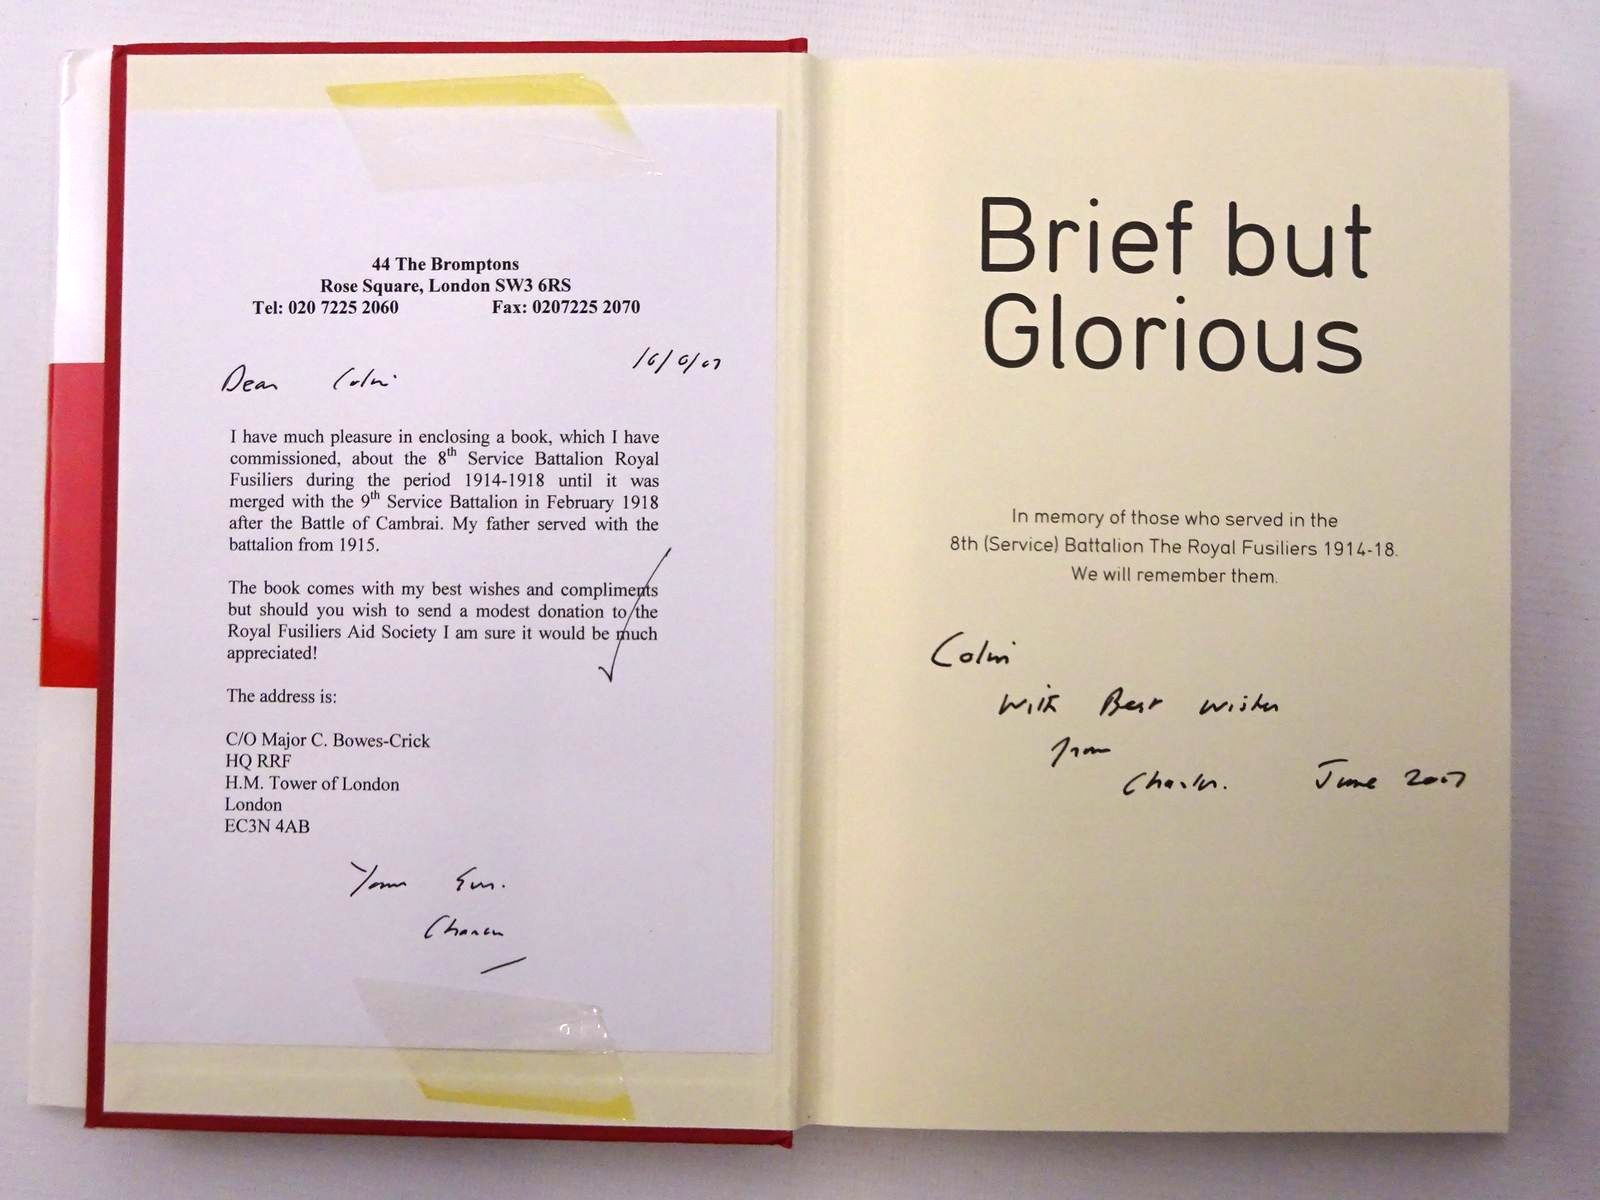 44 The Bromptons
Rose Square, London SW3 6RS
Tel: 020 7225 2060 Fax: 0207225 2070
16/6/07
Dear Colin
I have much pleasure in enclosing a book, which I have
commissioned, about the 8th Service Battalion Royal
Fusiliers during the period 1914-1918 until it was
merged with the 9th Service Battalion in February 1918
after the Battle of Cambrai. My father served with the
battalion from 1915.
The book comes with my best wishes and compliments
but should you wish to send a modest donation to the
Royal Fusiliers Aid Society I am sure it would be much
appreciated!
The address is:
C/O Major C. Bowes-Crick
HQ RRF
H.M. Tower of London
London
EC3N 4AB
Yours
Charles
Brief but
Glorious
In memory of those who served in the
8th (Service) Battalion The Royal Fusiliers 1914-18.
We will remember them.
Colin
With Best Wishes
from
Charles. June 2007